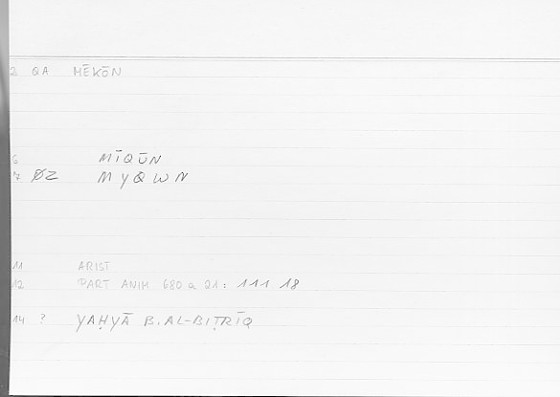 2 QA MĒKŌN
6 MĪQŪN
7 ØZ MYQWN
11 ARIST
12 PART ANIM 680 a 21: 111 18
14 ? YAḤYĀ B. AL-BIṬRĪQ